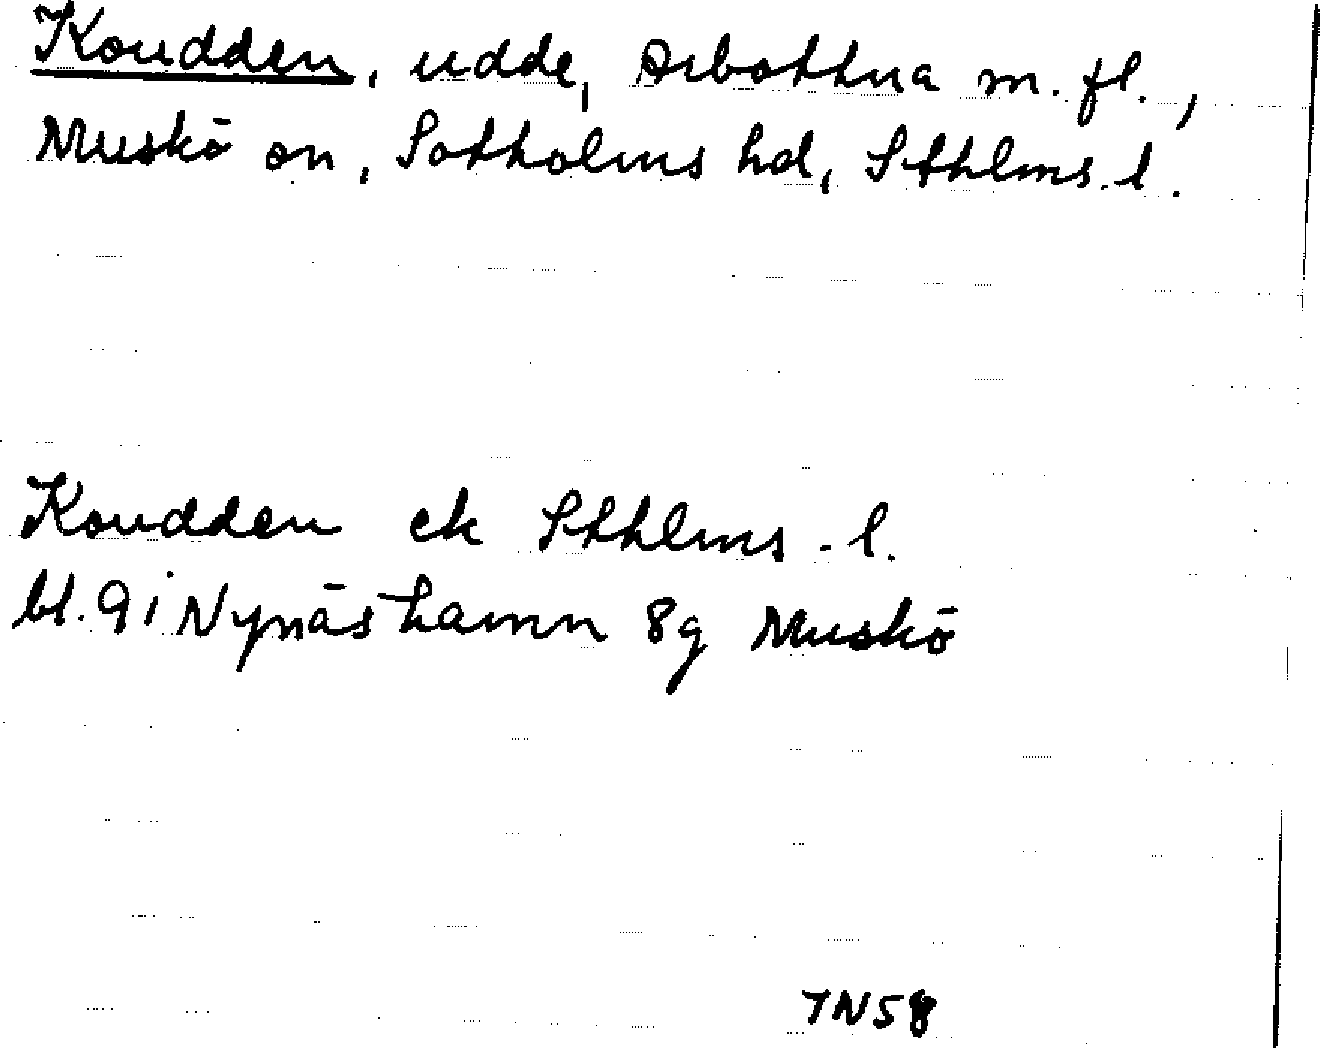 Koudden, udde, Arbottna m. fl.,
Muskö sn, Sotholms hd, Sthlms. l.
Koudden ek Sthlms. l.
bl. 9 i Nynäshamn 8g Muskö
TN58